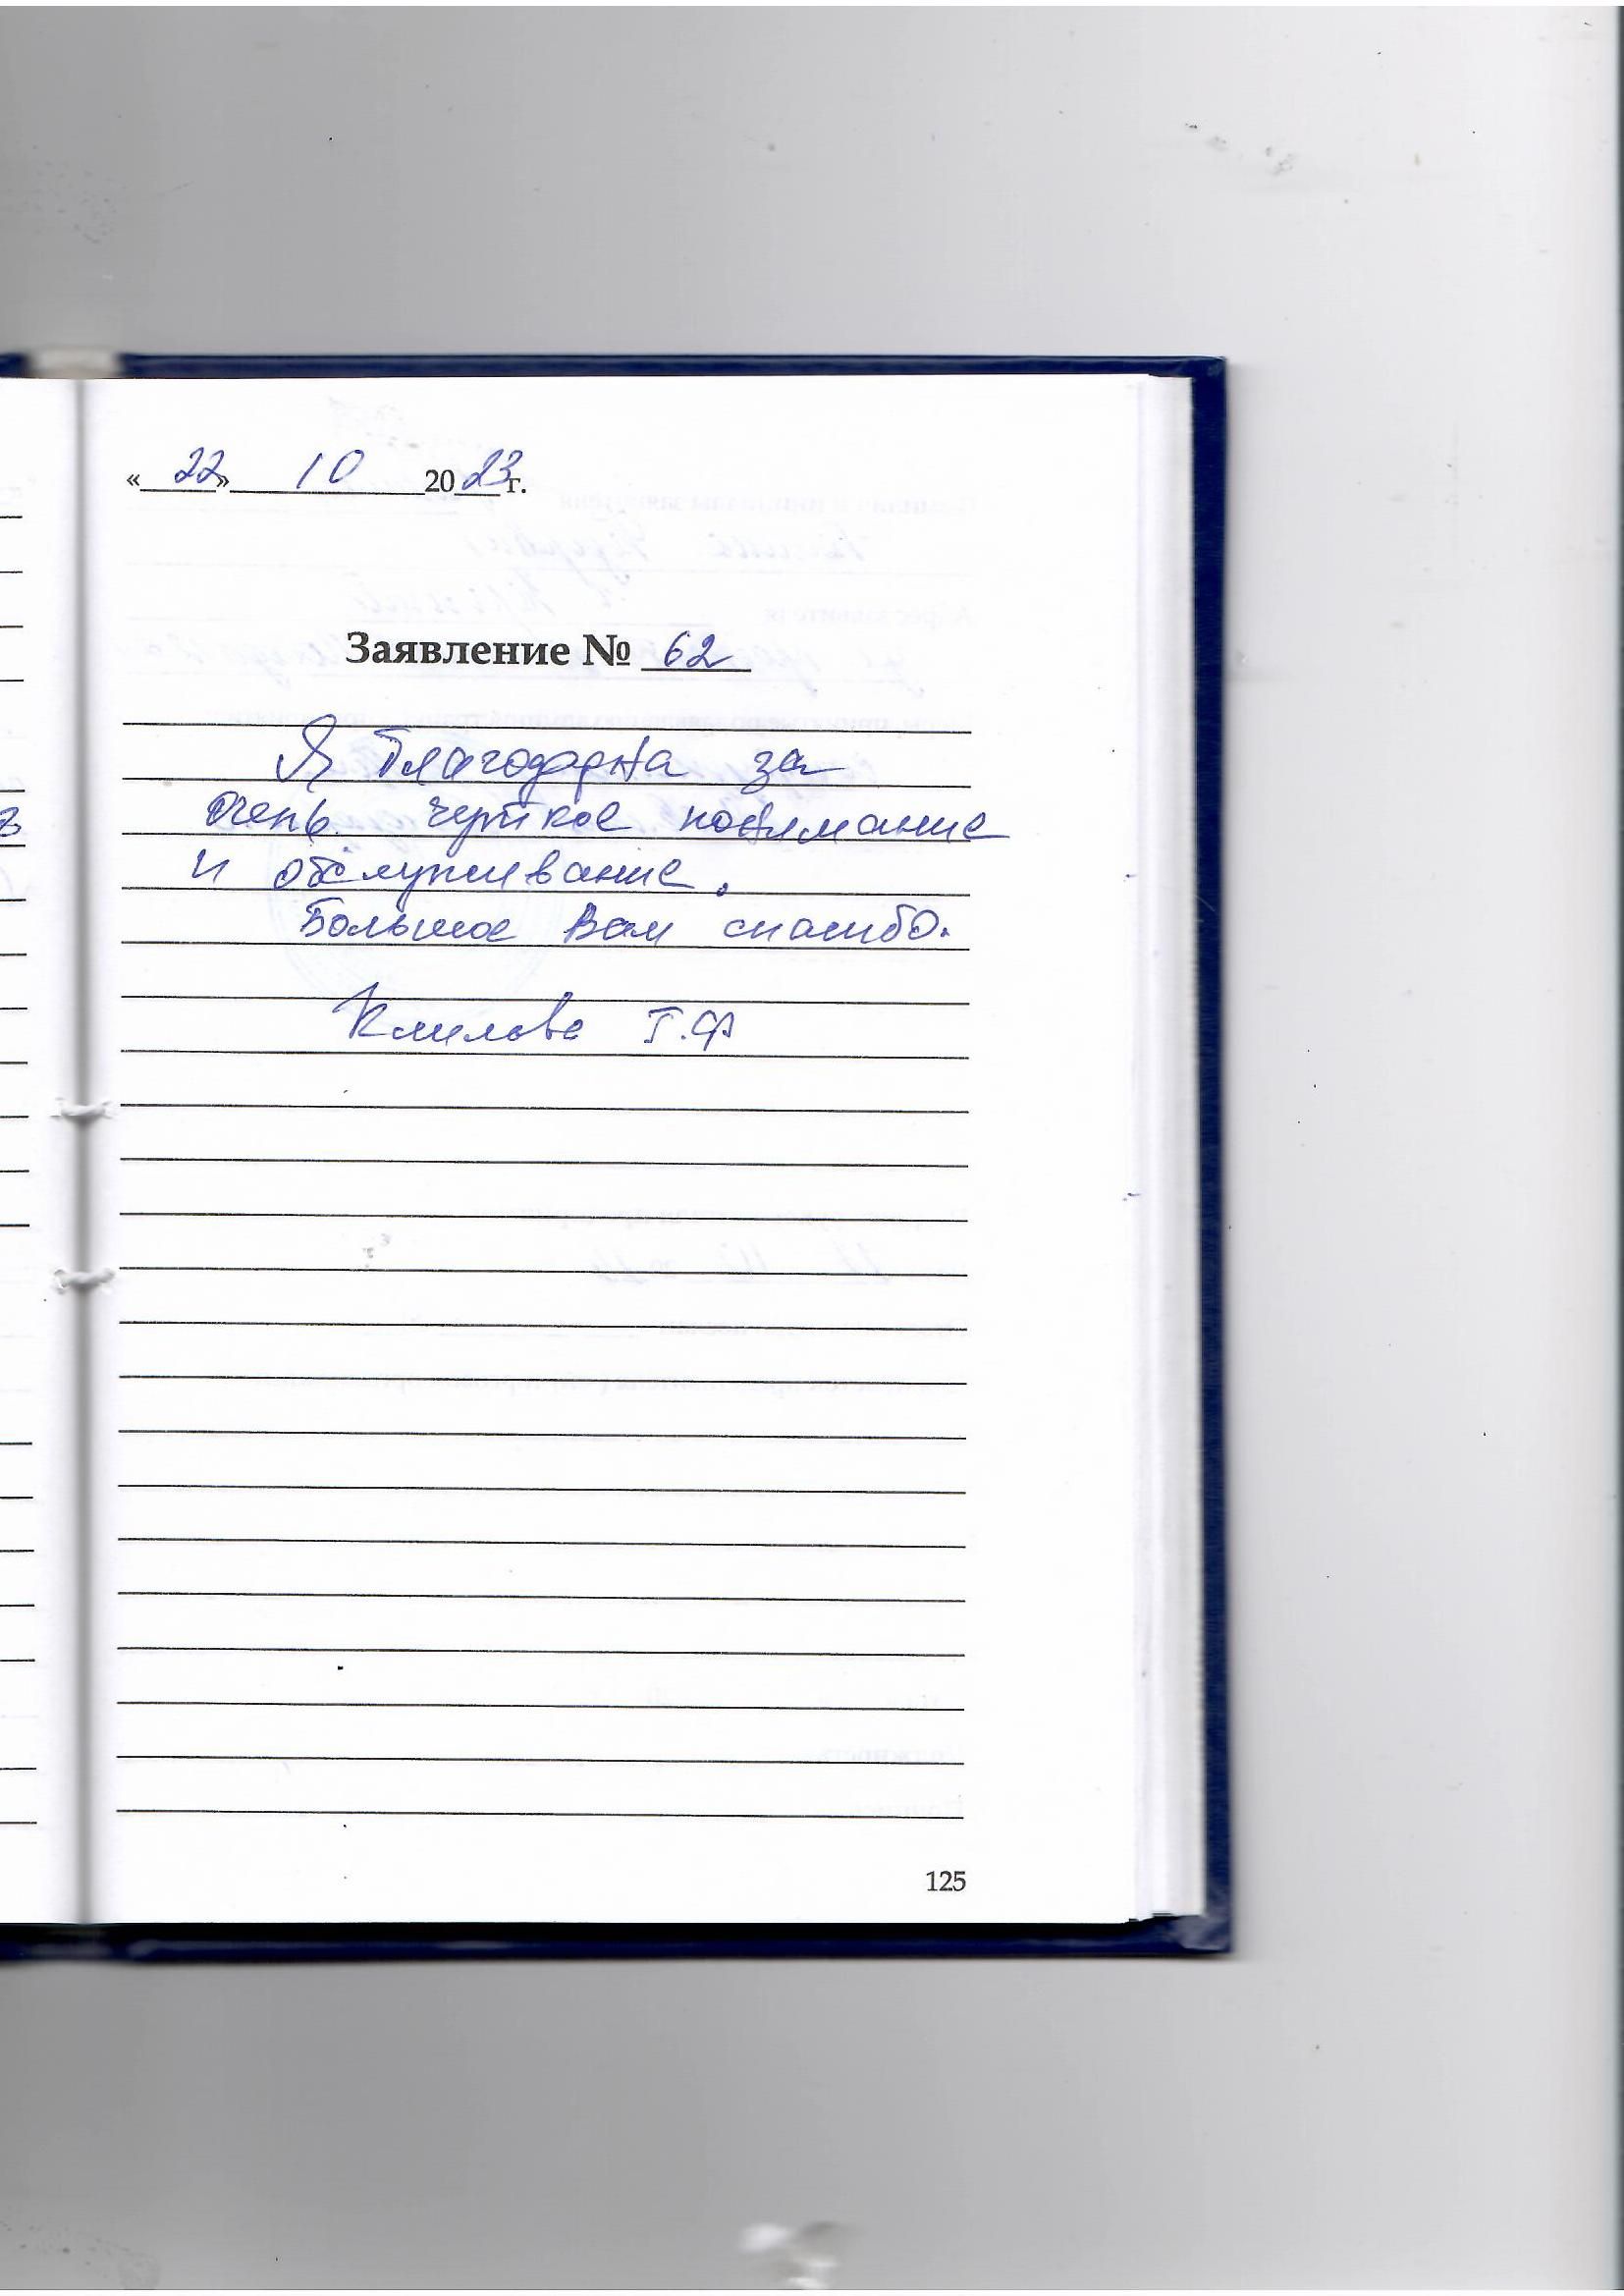 «22» 10 2023 г.
Заявление № 62
Я благодарна за
очень четкое понимание
и обслуживание.
Большое Вам спасибо.
Т.Ф
125